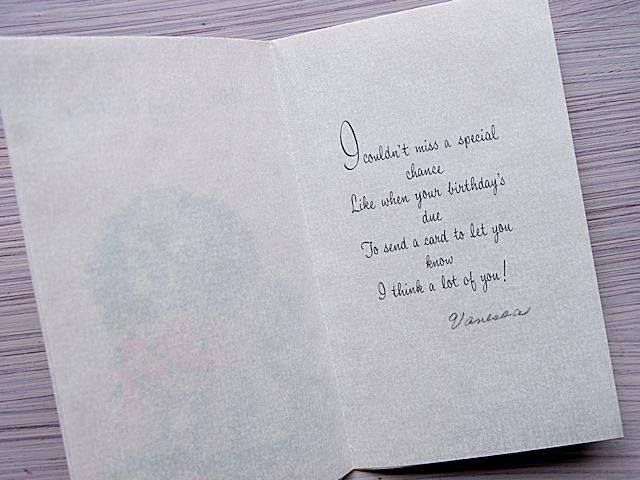 I couldn't miss a special
chance
Like when your birthday's
due
To send a card to let you
know
I think a lot of you!
Vanessa